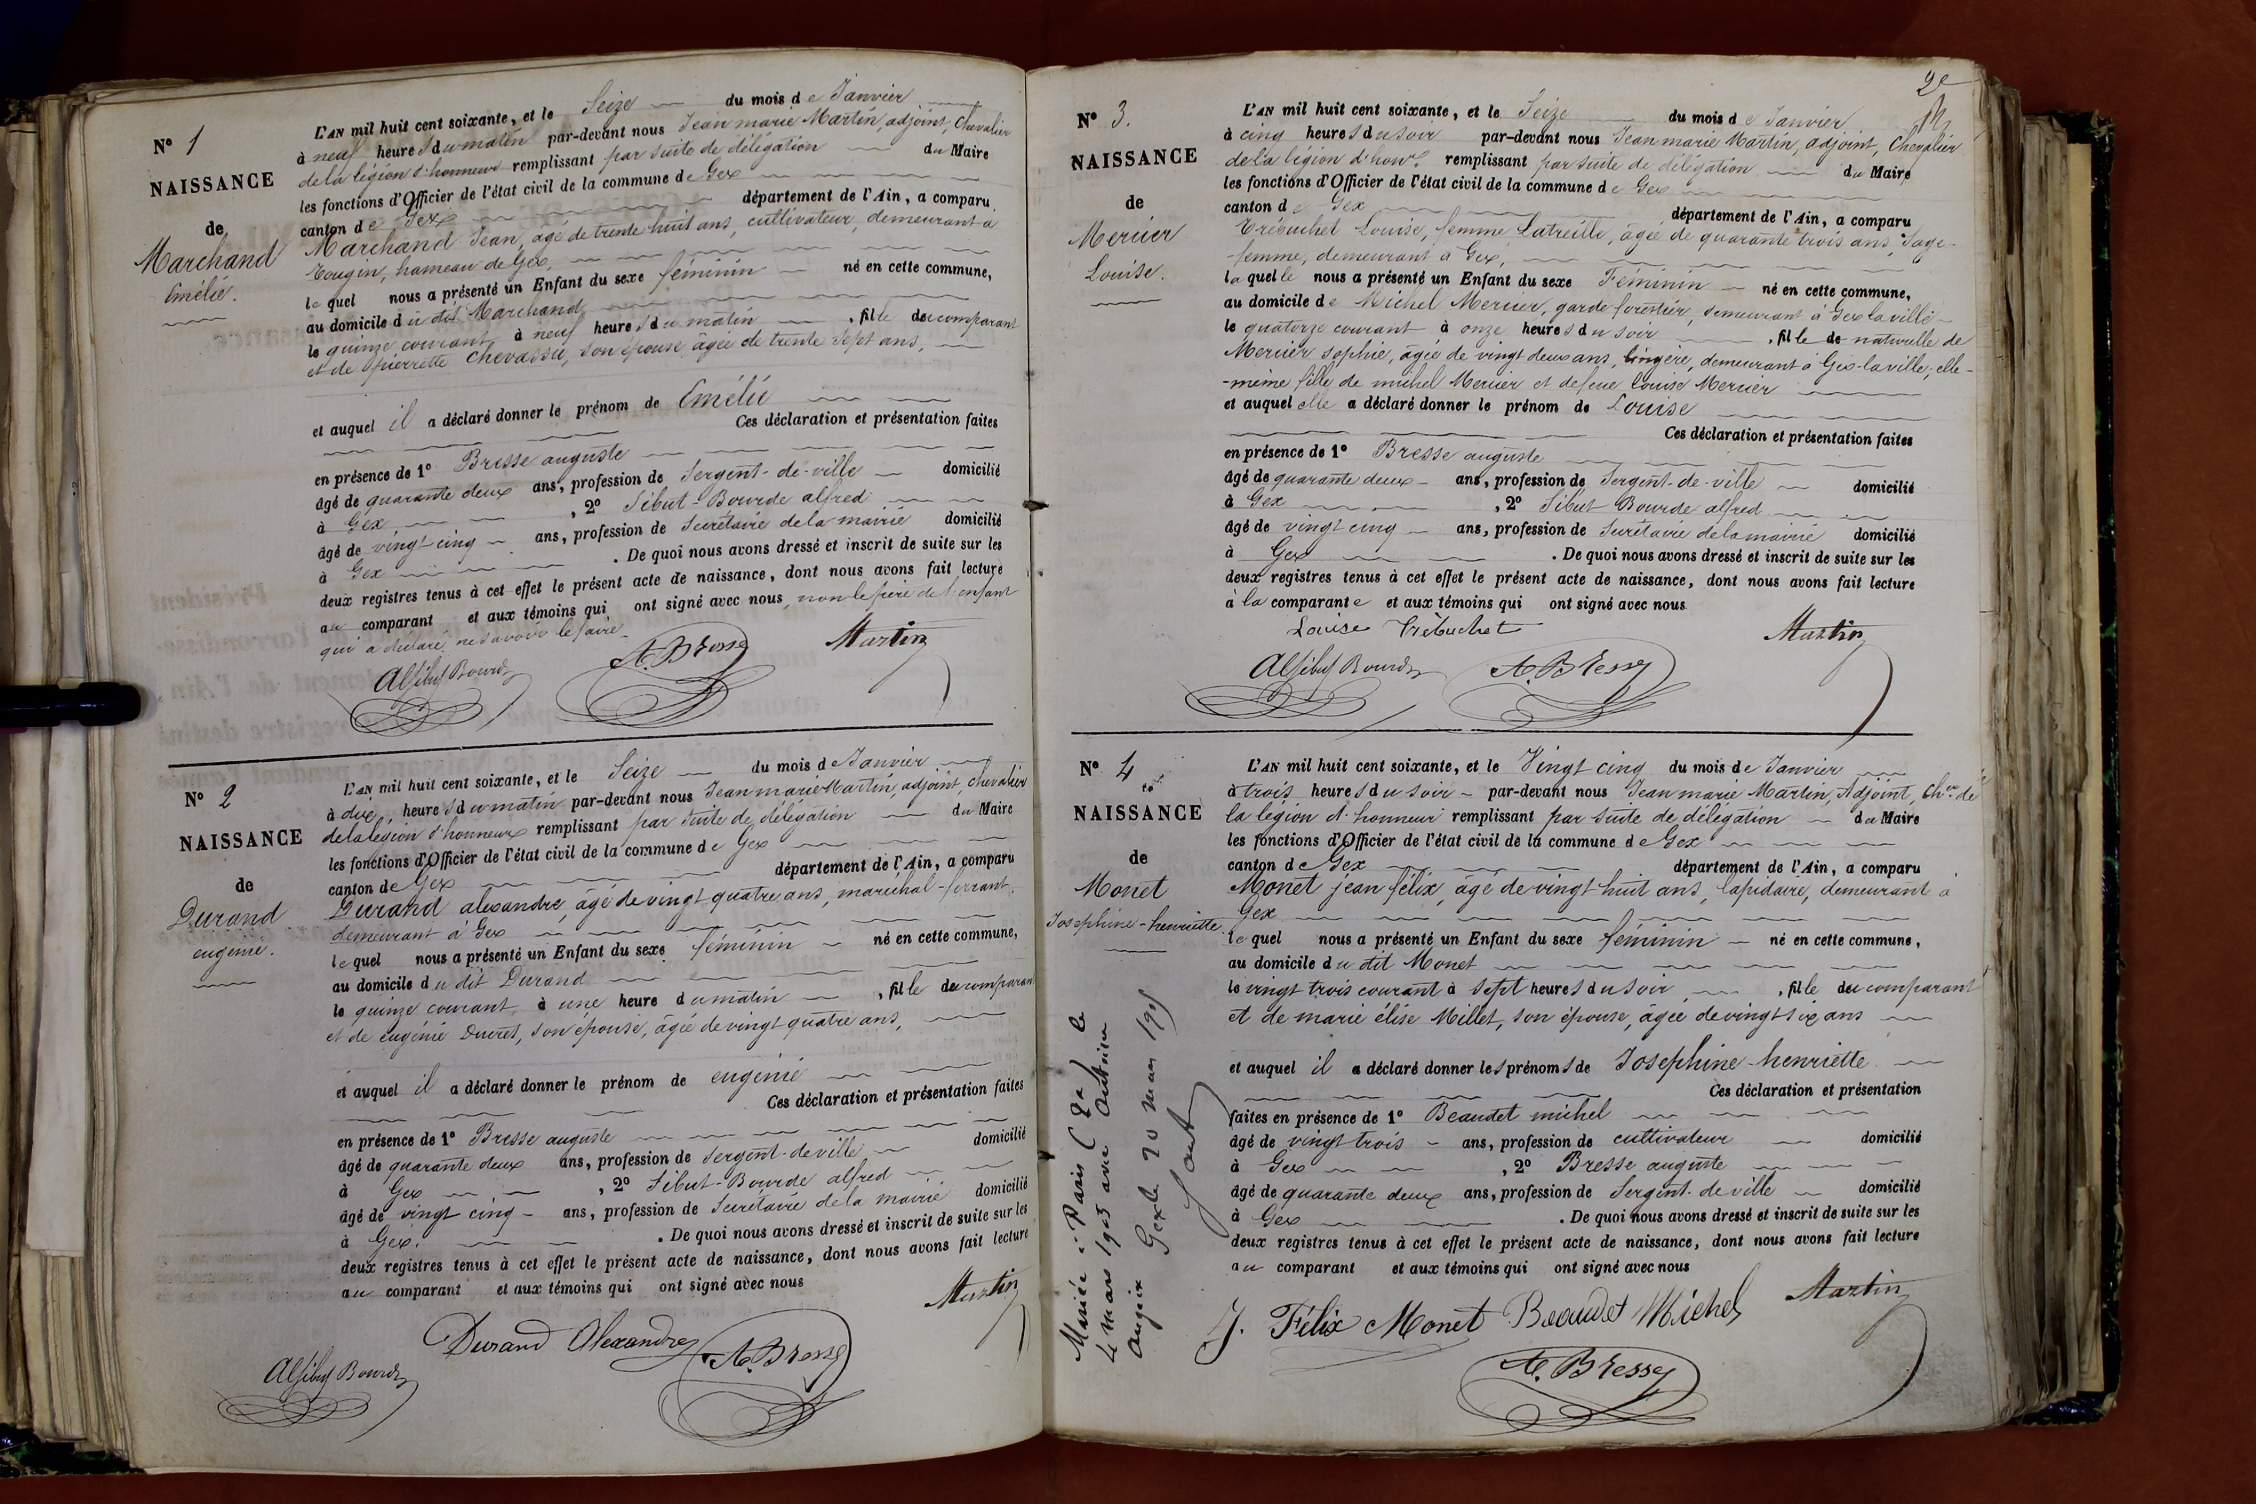 N° 1
NAISSANCE
de
Marchand
Emélie.
L'AN mil huit cent soixante, et le Seize du mois de Janvier
à neuf heures du matin par-devant nous Jean marie Martin, adjoint, Chevalier
de la légion d'honneur remplissant par suite de délégation du Maire
les fonctions d'Officier de l'état civil de la commune de Gex
canton de Gex département de l'Ain, a comparu
Marchand Jean, âgé de trente huit ans, cultivateur, demeurant à
Tougin, hameau de Gex,
lequel nous a présenté un Enfant du sexe féminin né en cette commune,
au domicile du dit Marchand
le quinze courant à neuf heures du matin, fille du comparant
et de pierrette Chevassu, son épouse, âgée de trente sept ans,
et auquel il a déclaré donner le prénom de Emélie
Ces déclaration et présentation faites
en présence de 1° Bresse auguste
âgé de quarante deux ans, profession de Sergent-de-ville domicilié
à Gex, 2° Sibut-Bourde alfred
âgé de vingt cinq ans, profession de Secrétaire de la mairie domicilié
à Gex. De quoi nous avons dressé et inscrit de suite sur les
deux registres tenus à cet effet le présent acte de naissance, dont nous avons fait lecture
au comparant et aux témoins qui ont signé avec nous, non le père de l'enfant
qui a déclaré ne savoir le faire.
A. Bresse Martin
Alf Sibut Bourde
N° 2
NAISSANCE
de
Durand
eugénie.
L'AN mil huit cent soixante, et le Seize du mois de Janvier
à dix, heures du matin par-devant nous Jean marie Martin, adjoint, chevalier
de la légion d'honneur remplissant par suite de délégation du Maire
les fonctions d'Officier de l'état civil de la commune de Gex
canton de Gex département de l'Ain, a comparu
Durand alexandre, âgé de vingt quatre ans, maréchal-ferrant,
demeurant à Gex
lequel nous a présenté un Enfant du sexe féminin né en cette commune,
au domicile du dit Durand
le quinze courant, à une heure du matin, fille du comparant
et de eugénie Ducret, son épouse, âgée de vingt quatre ans,
et auquel il a déclaré donner le prénom de eugénie
Ces déclaration et présentation faites
en présence de 1° Bresse auguste
âgé de quarante deux ans, profession de Sergent-de ville domicilié
à Gex, 2° Sibut-Bourde alfred
âgé de vingt cinq ans, profession de Secrétaire de la mairie domicilié
à Gex. De quoi nous avons dressé et inscrit de suite sur les
deux registres tenus à cet effet le présent acte de naissance, dont nous avons fait lecture
au comparant et aux témoins qui ont signé avec nous
Martin
Durand Alexandre A. Bresse
Alf Sibut Bourde
2e
N° 3.
NAISSANCE
de
Mercier
Louise.
L'AN mil huit cent soixante, et le Seize du mois de Janvier
à cinq heures du soir par-devant nous Jean marie Martin, adjoint, Chevalier
de la légion d'honr. remplissant par suite de délégation du Maire
les fonctions d'Officier de l'état civil de la commune de Gex
canton de Gex département de l'Ain, a comparu
Trébuchet Louise, femme Latreille, âgée de quarante trois ans, Sage-
femme, demeurant à Gex,
laquelle nous a présenté un Enfant du sexe Féminin né en cette commune,
au domicile de Michel Mercier, garde forestier, demeurant à Gex la ville
le quatorze courant à onze heures du soir, fille de naturelle de
Mercier sophie, âgée de vingt deux ans, lingère, demeurant à Gex-la ville, elle-
-même fille de michel Mercier et de feue Louise Mercier
et auquel elle a déclaré donner le prénom de Louise
Ces déclaration et présentation faites
en présence de 1° Bresse auguste
âgé de quarante deux ans, profession de Sergent-de-ville domicilié
à Gex, 2° Sibut Bourde alfred
âgé de vingt cinq ans, profession de Secrétaire de la mairie domicilié
à Gex. De quoi nous avons dressé et inscrit de suite sur les
deux registres tenus à cet effet le présent acte de naissance, dont nous avons fait lecture
à la comparante et aux témoins qui ont signé avec nous
Louise Trébuchet Martin
Alf Sibut Bourde A. Bresse
N° 4
NAISSANCE
de
Monet
Josephine-henriette.
L'AN mil huit cent soixante, et le Vingt cinq du mois de Janvier
à trois heures du soir par-devant nous Jean marie Martin, Adjoint, Cher. de
la légion d'honneur remplissant par suite de délégation du Maire
les fonctions d'Officier de l'état civil de la commune de Gex
canton de Gex département de l'Ain, a comparu
Monet jean félix, âgé de vingt huit ans, lapidaire, demeurant à
Gex
lequel nous a présenté un Enfant du sexe féminin né en cette commune,
au domicile du dit Monet
le vingt trois courant à sept heures du soir, fille du comparant
et de marie élise Millet, son épouse, âgée de vingt six ans
et auquel il a déclaré donner les prénoms de Josephine-henriette
Ces déclaration et présentation
faites en présence de 1° Beaudet michel
âgé de vingt trois ans, profession de cultivateur domicilié
à Gex, 2° Bresse auguste
âgé de quarante deux ans, profession de Sergent-de ville domicilié
à Gex. De quoi nous avons dressé et inscrit de suite sur les
deux registres tenus à cet effet le présent acte de naissance, dont nous avons fait lecture
au comparant et aux témoins qui ont signé avec nous
Martin
J. Félix Monet Beaudet Michel
A. Bresse
Mariée à Paris le
mars 1905 avec
Gex le 20 mars 1905